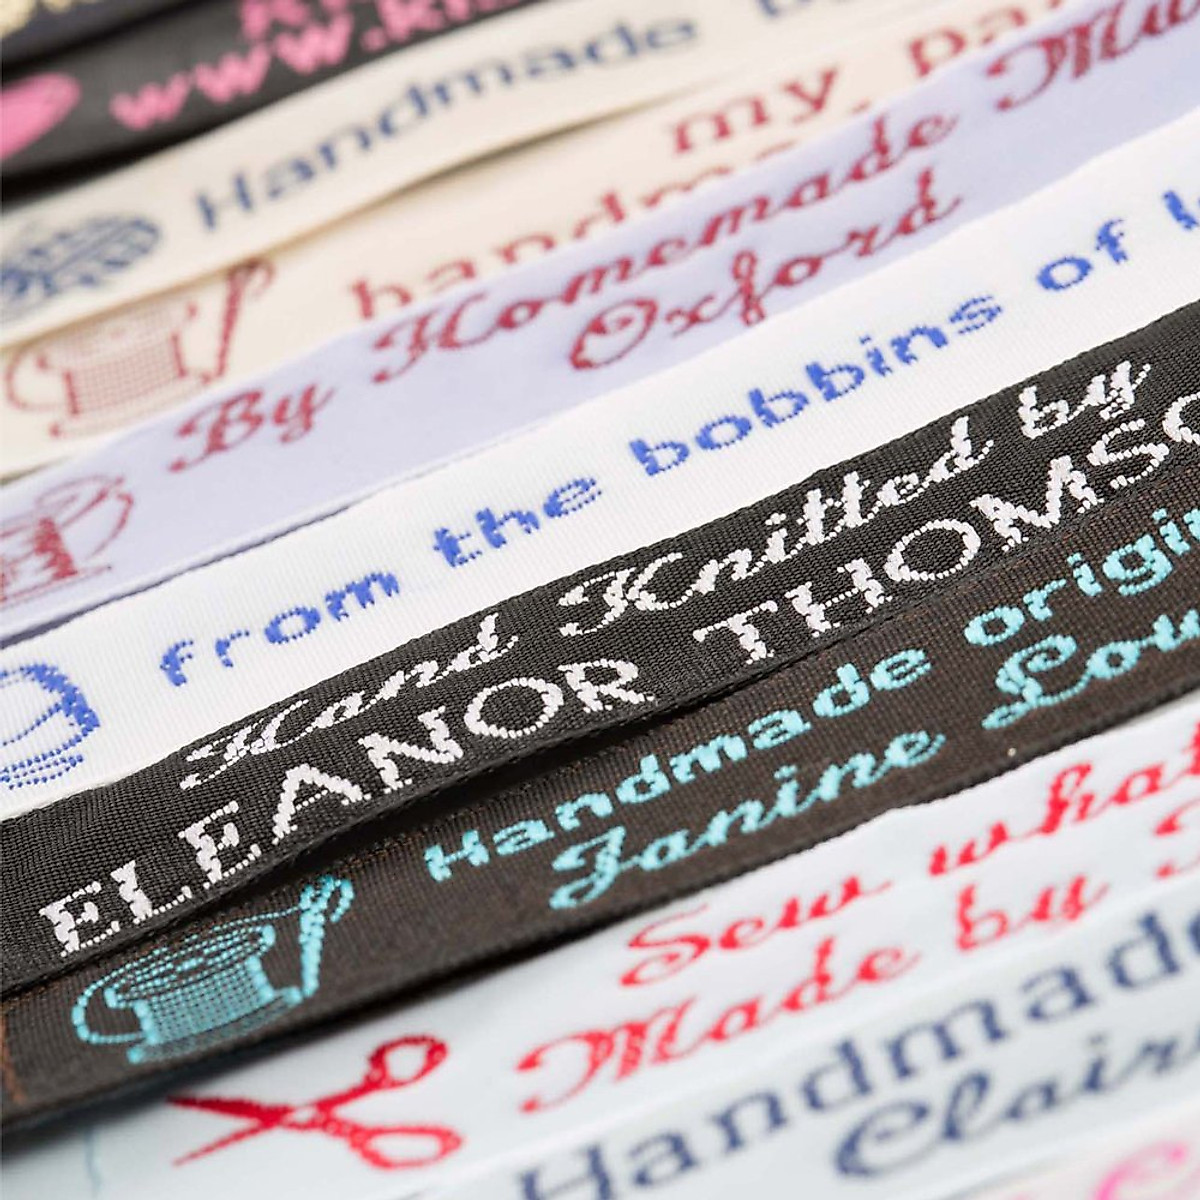 Handmade
my
handma
By Homemade
Oxford
from the bobbins of
Hand Knitted by
ELEANOR THOMSO
Handmade origin
Janine Lou
Sew what
Made by
Handmade
Clair